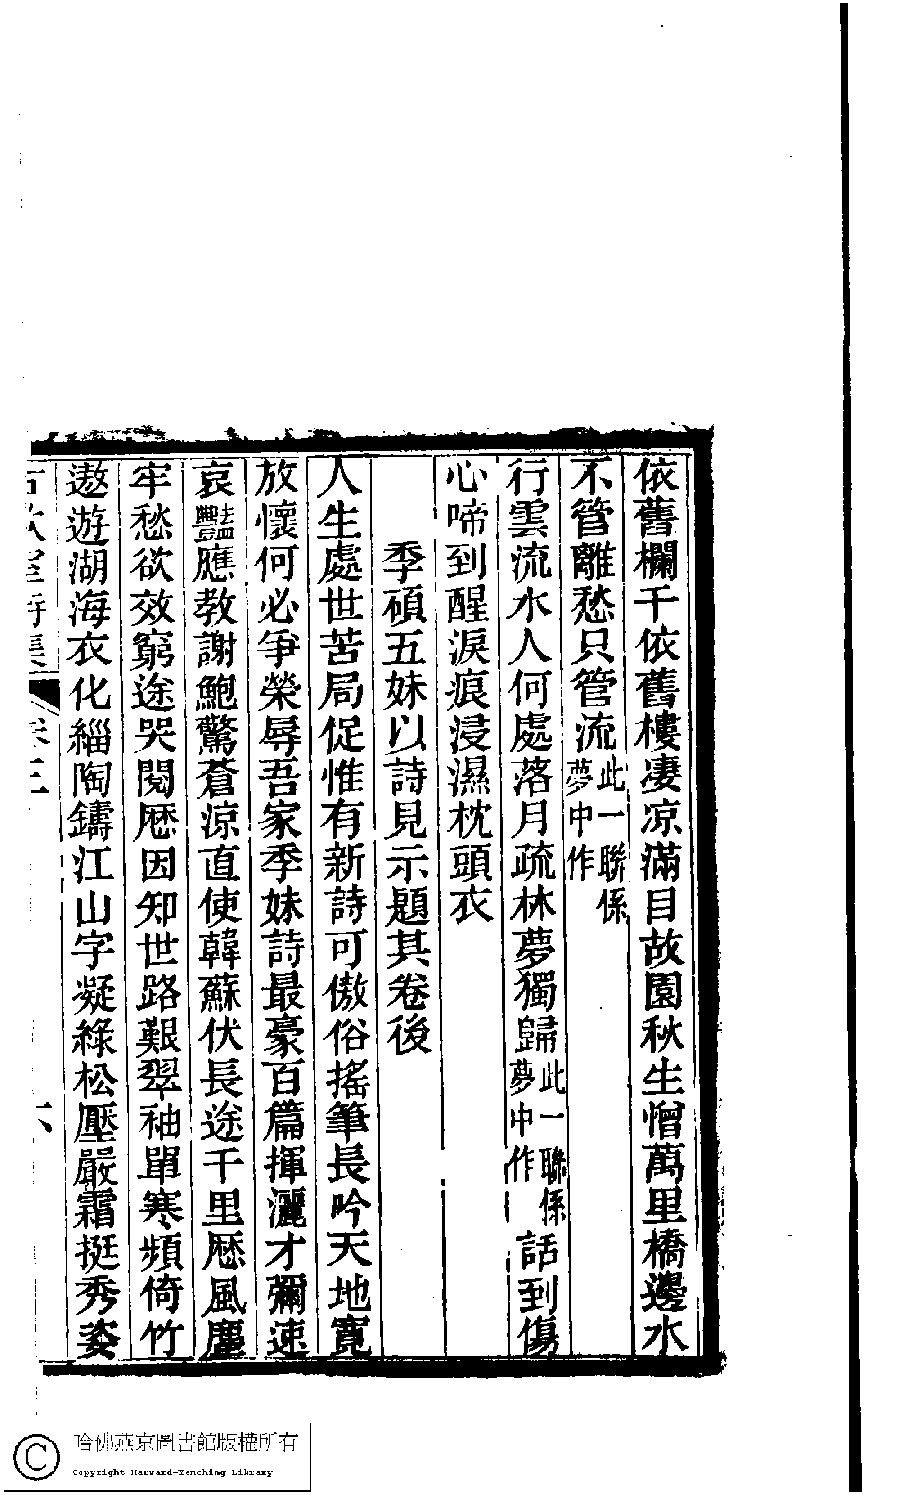 依舊欄干依舊樓凄凉滿目故園秋生憎萬里橋邊水
不管離愁只管流此一聯係夢中作
行雲流水人何處落月疏林夢獨歸此一聯係夢中作話到傷
心啼到醒淚痕浸濕枕頭衣
季碩五妹以詩見示題其卷後
人生處世苦局促惟有新詩可傲俗搖筆長吟天地寬
放懷何必爭榮辱吾家季妹詩最豪百篇揮灑才彌速
哀豔應教謝鮑驚蒼涼直使韓蘇伏長途千里歷風塵
牢愁欲效窮途哭閱歷因知世路艱翠袖單寒頻倚竹
遨遊湖海衣化緇陶鑄江山字凝綠松壓嚴霜挺秀姿
卷三
六
哈佛燕京圖書館版權所有
Copyright Harvard-Yenching Library